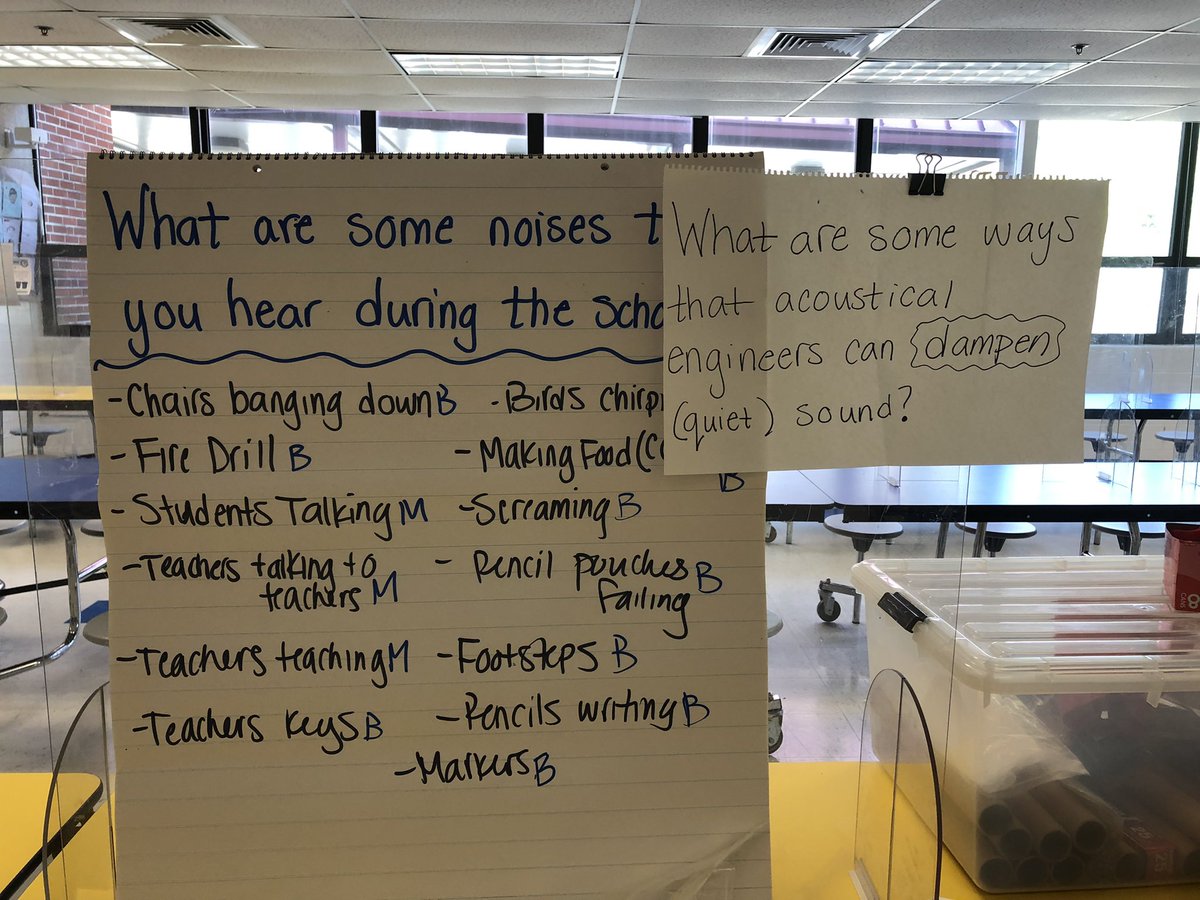 What are some noises t
you hear during the scho
- Chairs banging down B
- Fire Drill B
- Students Talking M
- Teachers talking to
teachers M
- Teachers teaching M
- Teachers keys B
- Birds chirp
- Making Food (C
B
- Screaming B
- Pencil pouches B
falling
- Footsteps B
- Pencils writing B
- Markers B
What are some ways
that acoustical
engineers can dampen
(quiet) sound?